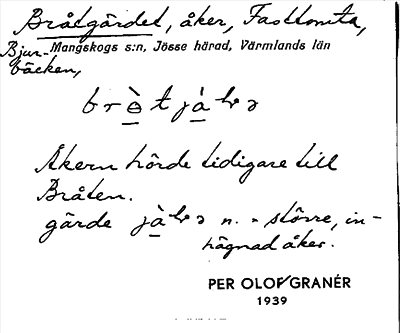 Bråtgärdet, åker, Fasttomta,
Bjur- Mangskogs s:n, Jösse härad, Värmlands län
bäcken,
Åkern hörde tidigare till
Bråten.
gärde n. = större, in-
hägnad åker.
PER OLOF GRANÉR
1939